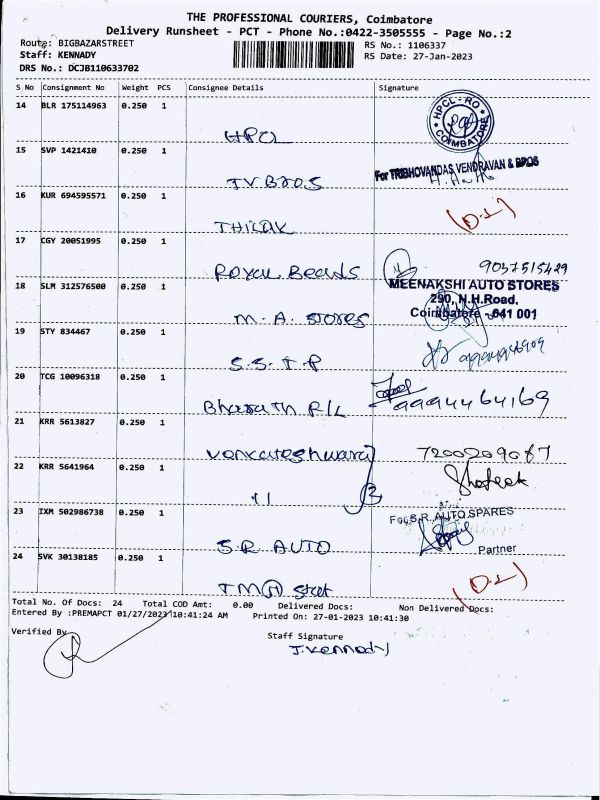 THE PROFESSIONAL COURIERS, Coimbatore
Delivery Runsheet - PCT - Phone No.:0422-3505555 - Page No.:2
Route: BIGBAZARSTREET RS No.: 1106337
Staff: KENNADY RS Date: 27-Jan-2023
DRS No.: DCJB110633702
S No Consignment No Weight PCS Consignee Details Signature
14 BLR 175114963 0.250 1
HPCL HPCL-RO COIMBATORE
15 SVP 1421410 0.250 1
TV Bros For TRIBHOVANDAS VENDRAVAN & BROS
16 KUR 694595571 0.250 1
THILAK (D-L)
17 CGY 20051995 0.250 1
Royal Beads 9037515429
18 SLM 312576500 0.250 1 MEENAKSHI AUTO STORES
290, N.H.Road,
M. A. Stores Coimbatore - 641 001
19 STY 834467 0.250 1
S.S.T.P
20 TCG 10096318 0.250 1
Bharath P/L 9994464169
21 KRR 5613827 0.250 1
Venkateshwara 7200209087
22 KRR 5641964 0.250 1
11
23 IXM 502986738 0.250 1 For S.R. AUTO SPARES
S.R. AUTO Partner
24 SVK 30138185 0.250 1
(D-L)
Total No. Of Docs: 24 Total COD Amt: 0.00 Delivered Docs: Non Delivered Docs:
Entered By :PREMAPCT 01/27/2023 10:41:24 AM Printed On: 27-01-2023 10:41:30
Verified By Staff Signature
J. Kennady